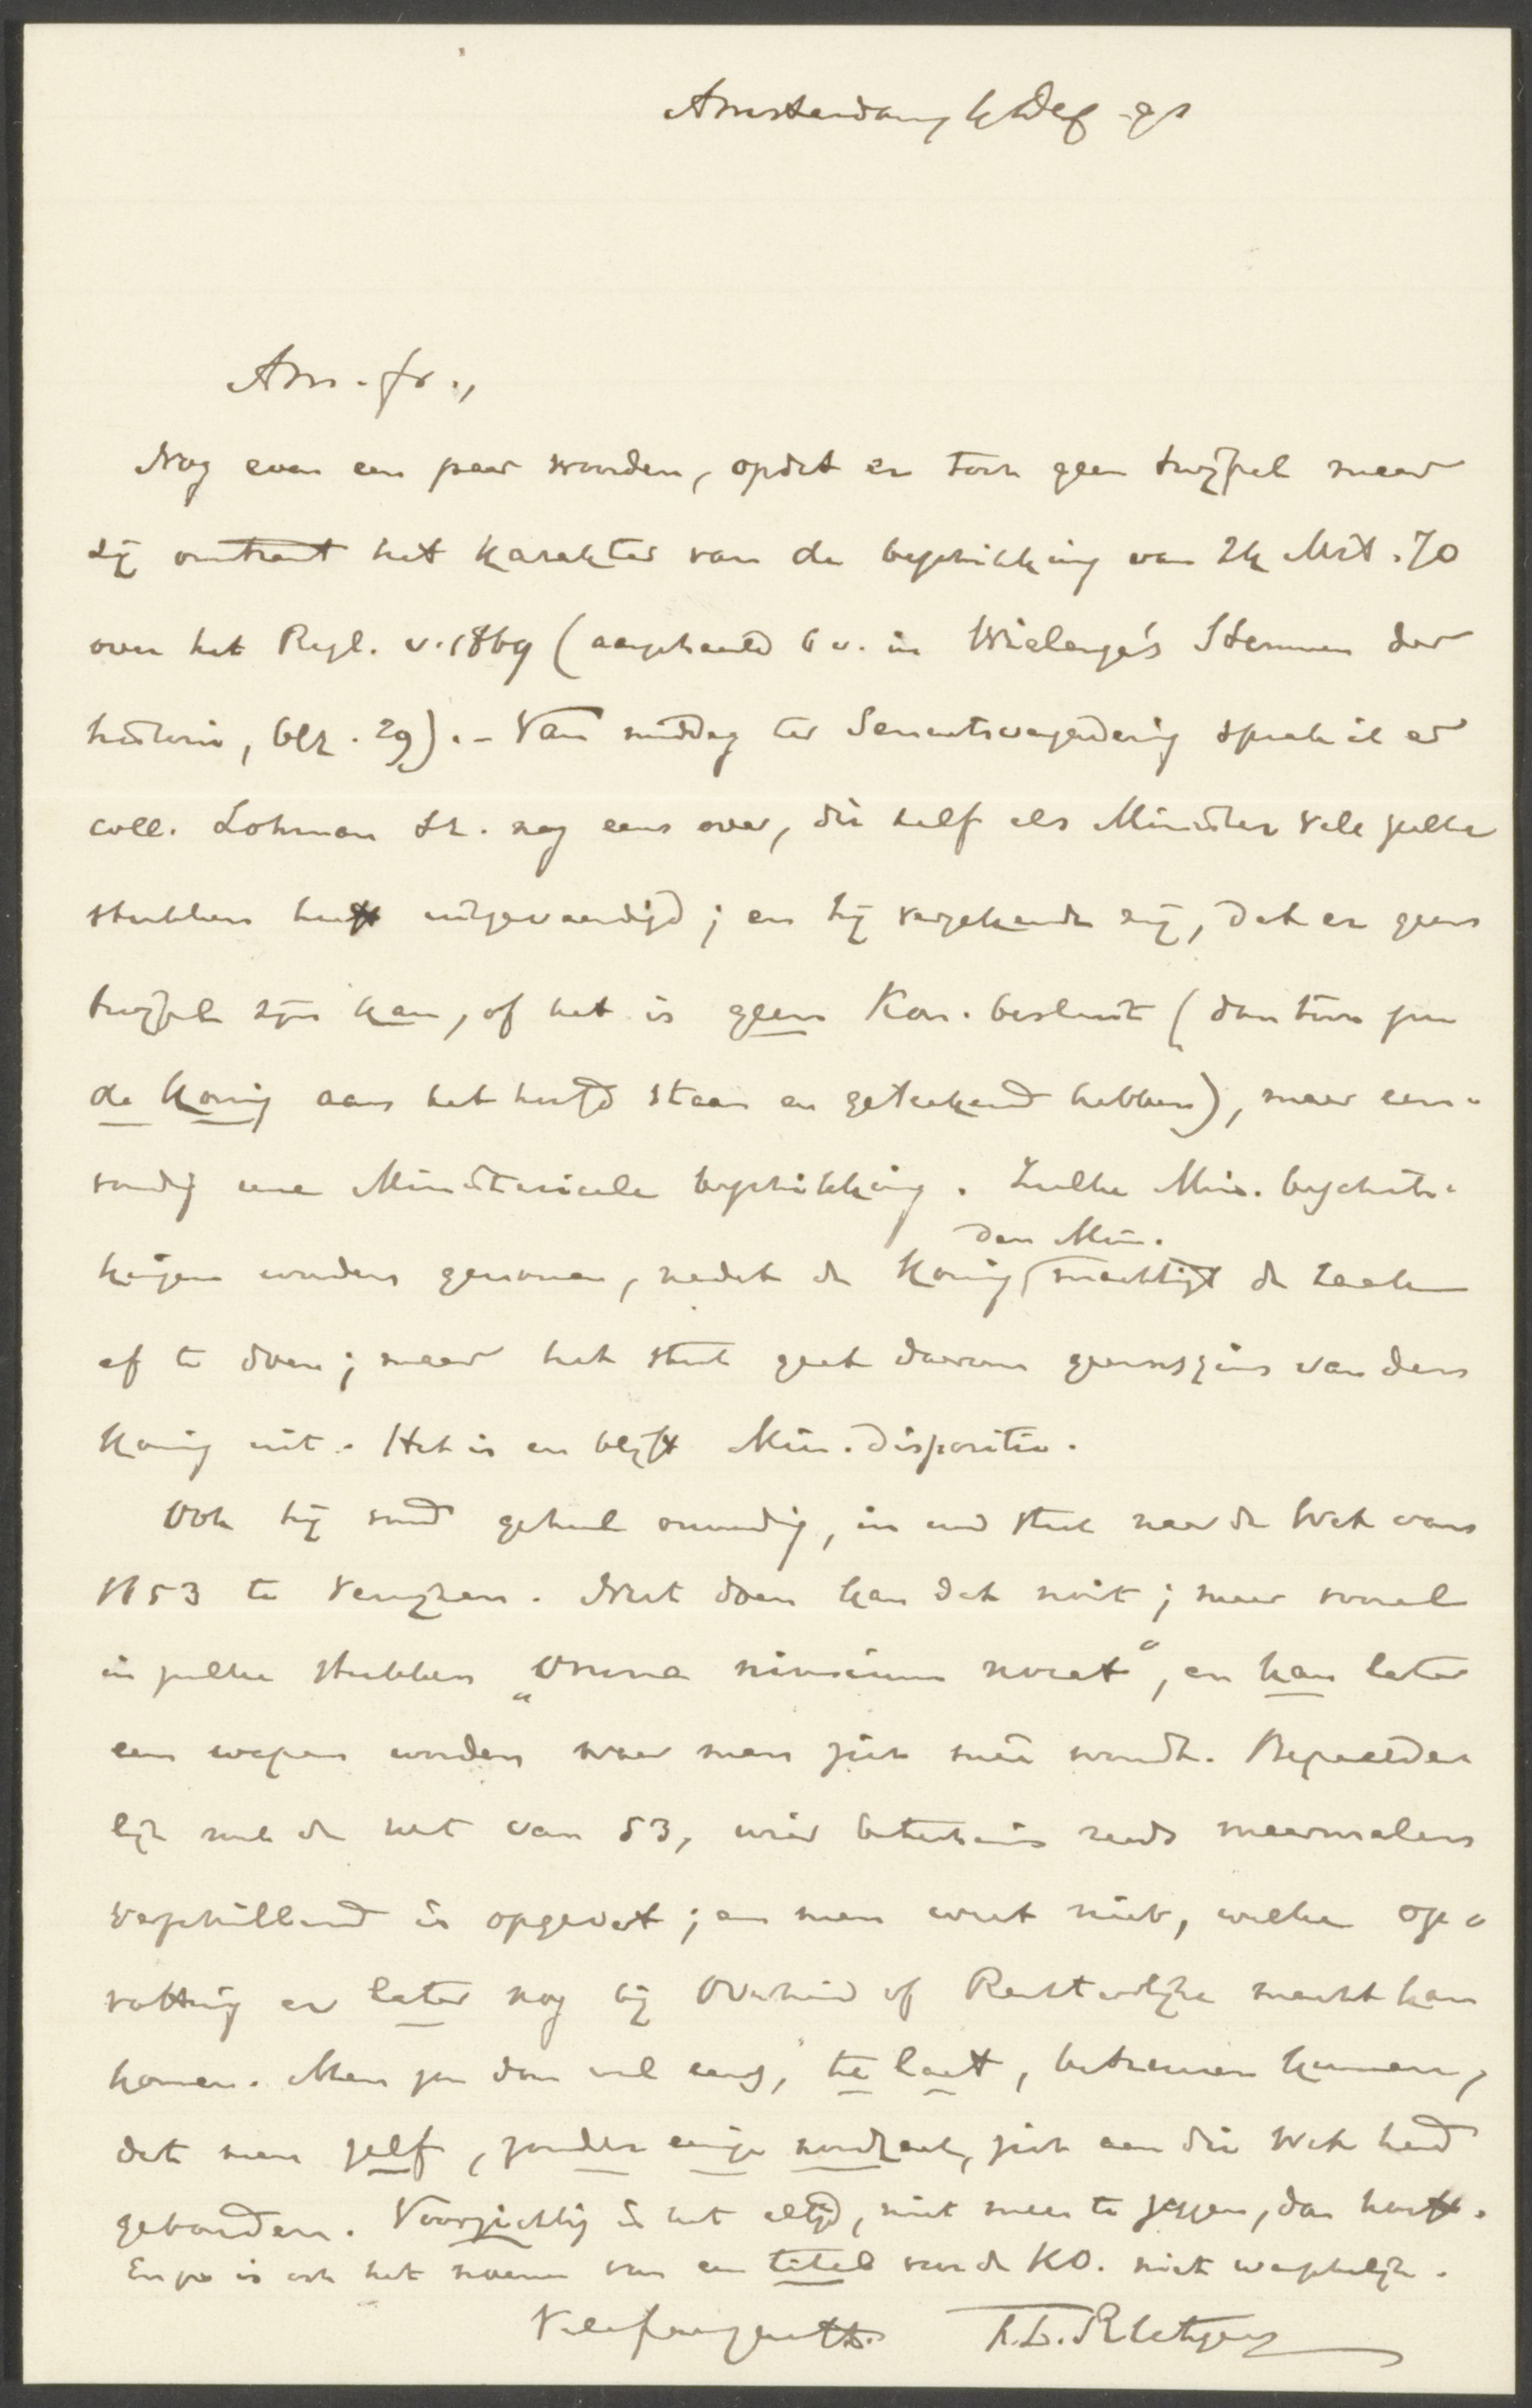 Amsterdam, 4 Dec. 91
Am. fr.,
Nog even een paar woorden, opdat er toch geen twijfel meer
zij omtrent het karakter van de beschikking van 24 Mrt. 70
over het Regl. v. 1869 (aangehaald b.v. in Wielenga's Stemmen der
historie, blz. 29). – Van middag ter Senaatsvergadering sprak ik er
coll. Lohman Sr. nog eens over, die zelf als Minister vele zulke
stukken heeft uitgevaardigd; en hij verzekerde mij, dat er geen
twijfel zijn kan, of het is geen Kon. besluit (dan tòch zou
de Koning aan het hoofd staan en geteekend hebben), maar een-
voudig eene Ministerieele beschikking. Zulke Min. beschik-
kingen worden genomen, nadat de Koning den Min. machtigt de zaak
af te doen; maar het stuk gaat daarom geenszins van den
Koning uit. Het is en blijft Min. dispositie.
Ook hij vond geheel onnoodig, in uw stuk naar de Wet van
1853 te verwijzen. Nut doen kan dat nooit; maar vooral
in zulke stukken „omne nimium nocet“, en kan later
een wapen worden waar men zich mee wondt. Bepaalde-
lijk met de wet van 53, wier beteekenis reeds meermalen
verschillend is opgevat; en men weet niet, welke op-
vatting er later nog bij Overheid of Rechterlijke macht kan
komen. Men zou dan wel eens, te laat, betreuren kunnen,
dat men zelf, zonder eenige noodzaak, zich aan die Wet had
gebonden. Voorzichtig is het altijd, niet meer te zeggen, dan hoeft.
En zoo is ook het noemen van een titel van de KO. niet wenschelijk.
F.L. Rutgers